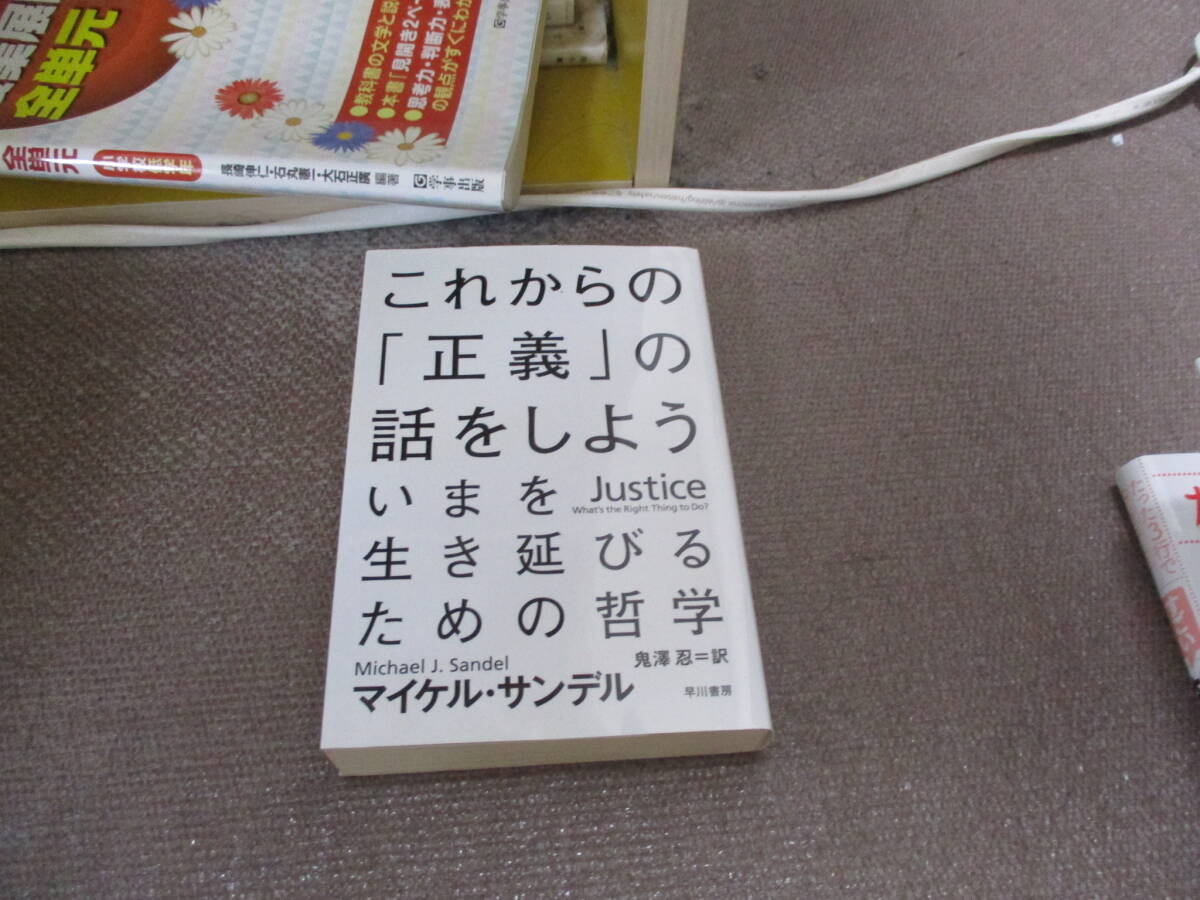 全単元
●教科書の文学と説
●本書「見開き2ペー
●思考力・判断力・表
の観点がすぐにわか
全単元
小学校低学年
長崎伸仁・石丸憲一・大石正廣 編著
学事出版
これからの
「正義」の
話をしよう
いまを
Justice
What's the Right Thing to Do?
生き延びる
ための哲学
Michael J. Sandel
鬼澤 忍=訳
マイケル・サンデル
早川書房